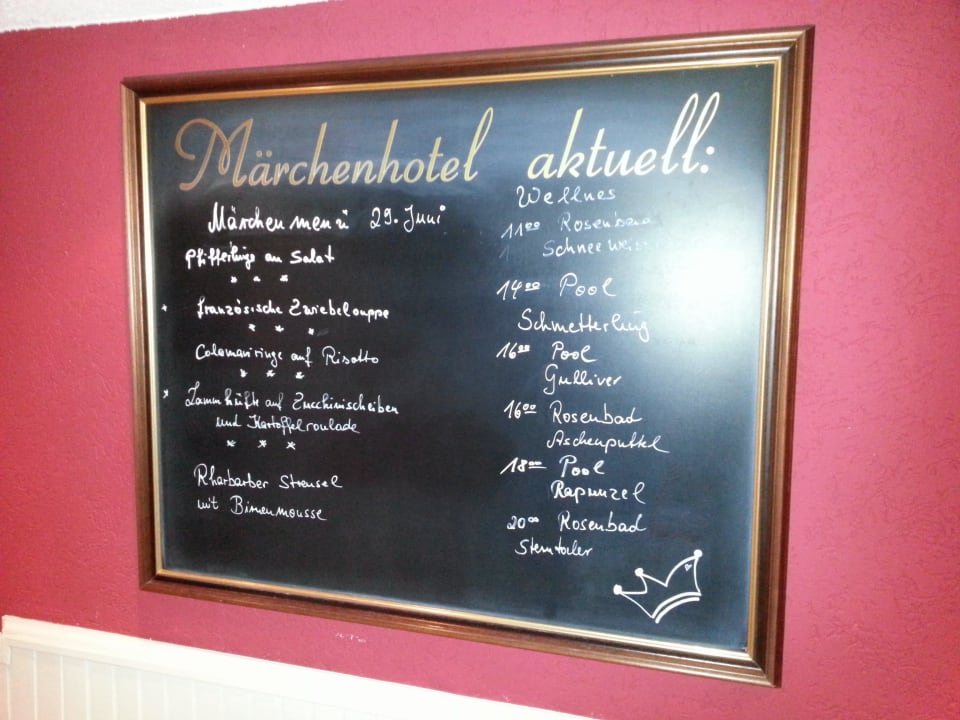 Märchenhotel aktuell:
Märchenmenü 29. Juni
Pfifferlinge an Salat
* * *
* Französische Zwiebelsuppe
* * *
Calamariringe auf Risotto
* * *
* Lammhüfte auf Zucchinischeiben
und Kartoffelroulade
* * *
Rharbarber Streusel
mit Birnenmousse
Wellnes
11⁰⁰ Rosenbad
Schneeweiss
14⁰⁰ Pool
Schmetterling
16⁰⁰ Pool
Gulliver
16⁰⁰ Rosenbad
Aschenputtel
18⁰⁰ Pool
Rapunzel
20⁰⁰ Rosenbad
Sterntaler